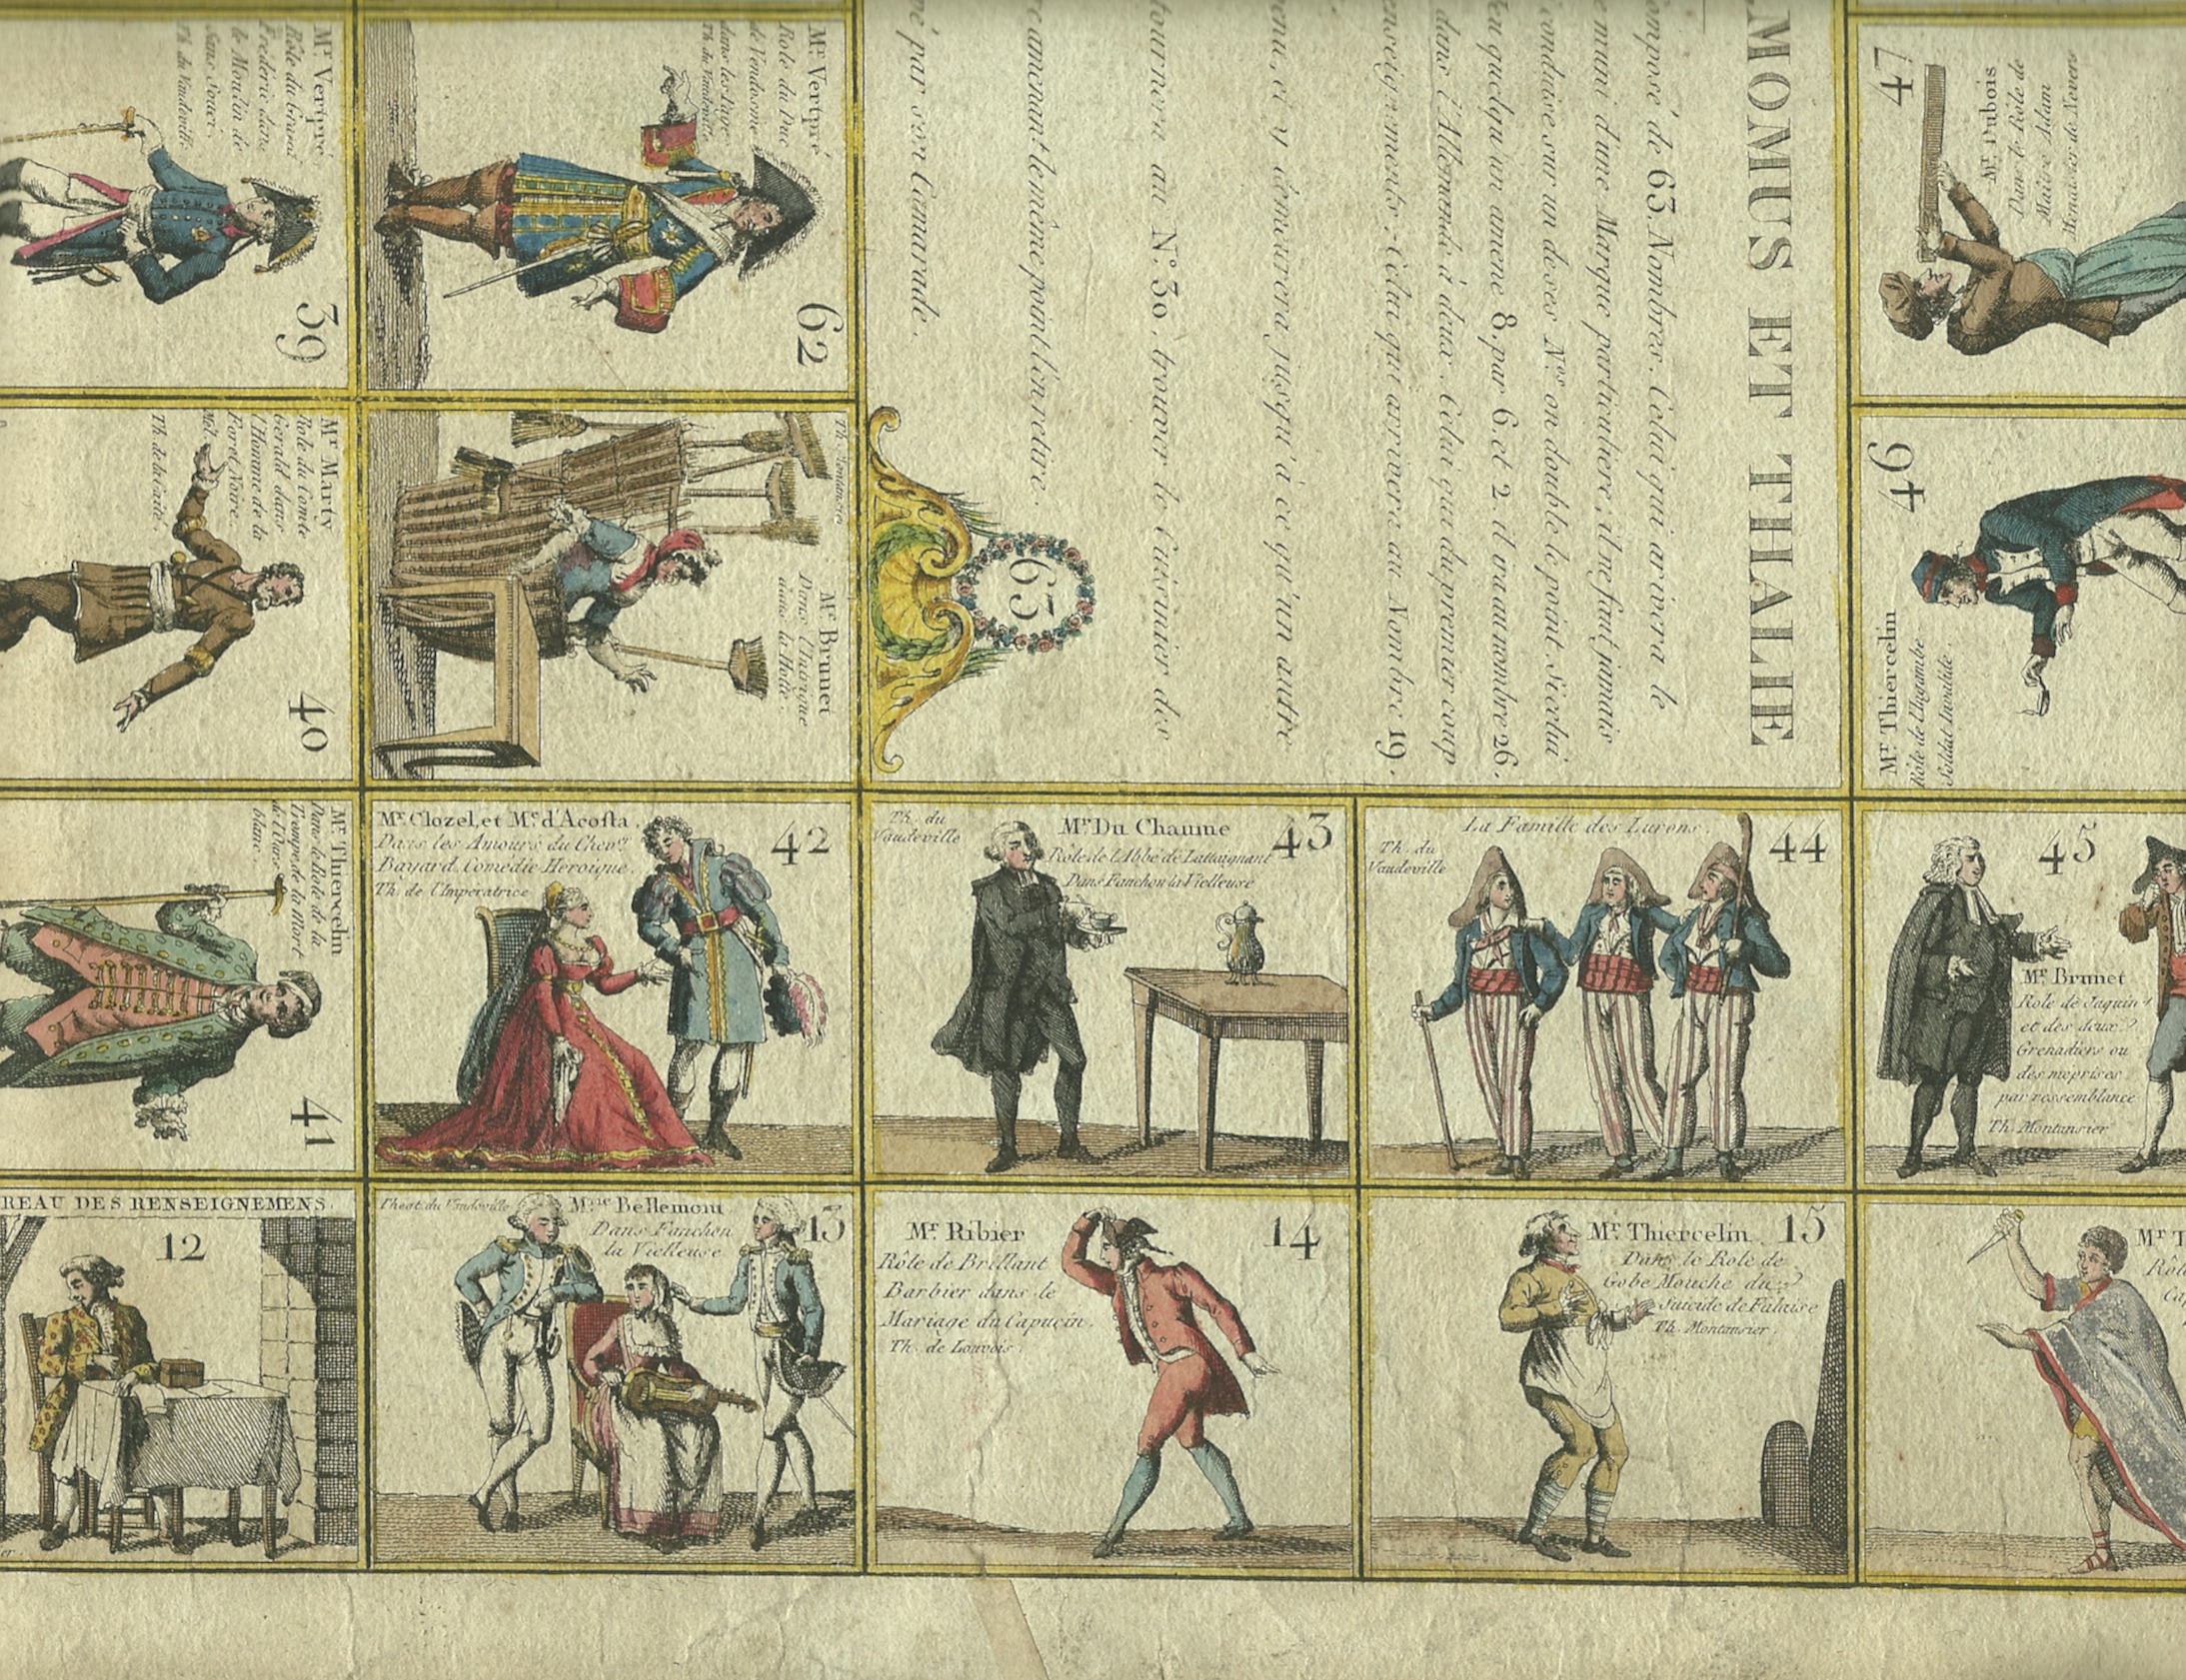 MOMUS ET THALIE
omposé de 63. Nombres. Celui qui arrivera le
e muni d'une Marque particuliere; il ne faut jamais
conduise sur un de ses Nos. on double le point. Si celui
eu quelqu'un amene 8. par 6. et 2. il ira au nombre 26.
dans l'Allemande à deux. Celui qui du premier coup
enseignements; Celui qui arrivera au Nombre 19.
enu, et y demeurera jusqu'à ce qu'un autre
tournera au No. 30. trouver le Cuisinier des
ramenant le même point l'en retire.
vé par son Camarade.
63
Mr. Vertpré
Rôle du
Frédéric dans
le Moulin de
Sans Souci.
Th. du Vaudeville
39
Mr. Vertpré
Role du Duc
de Vendosme
dans les Pages
Th. du Vaudeville
62
47
Mr. Dubois
Dans le Rôle de
Maitre Adam
Menuisier de Nevers
Mr. Marty
Role du Comte
Gerald dans
l'Homme de la
Foret Noire.
Mél.
Th. de la Gaité.
40
Th. Montansier
Mr. Brunet
Dans l'Intrigue
dans la Hotte.
46
Mr. Thiercelin
Rôle de l'Ingambe
Soldat Invalide.
Mr. Thiercelin
Dans le Role de la
Trompe de la Mort
de l'Ours
blanc.
41
Mr. Clozel, et Me. d'Acosta.
Dans les Amours du Chevr.
Bayard Comédie Heroïque.
Th. de l'Imperatrice
42
Th. du
Vaudeville
Mr. Du Chaume
Rôle de l'Abbé de Lattaignant
Dans Fanchon la Vielleuse
43
La Famille des Lurons.
Th. du
Vaudeville
44
45
Mr. Brunet
Role de Jaquin
et des deux
Grenadiers ou
des meprises
par ressemblance
Th. Montansier
REAU DES RENSEIGNEMENS.
12
Theat. du Vaudeville
Mme Bellemont
Dans Fanchon
la Vielleuse
13
Mr. Ribier
Rôle de Brillant
Barbier dans le
Mariage du Capucin.
Th. de Louvois.
14
Mr. Thiercelin
15
Dans le Role de
Gobe Mouche du
Suicide de Falaise
Th. Montansier.
Mr. T
Rôle
Ca